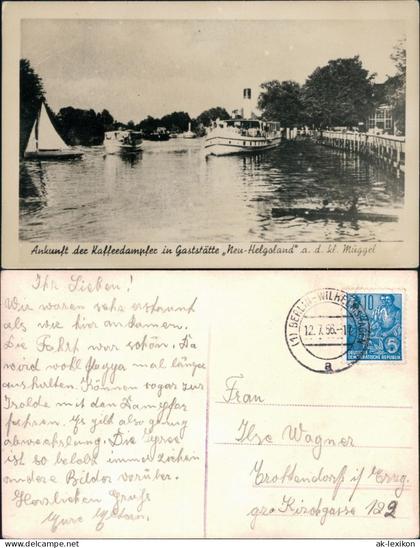 Ankunft der Kaffeedampfer in Gaststätte „Neu-Helgoland" a. d. kl. Müggel
Ihr Lieben!
Wir waren sehr erstaunt
als wir hier ankamen.
Die Fahrt war schön. Da
wird wohl mal länger
aushalten. Können sogar zur
Isolde mit den Dampfer
fahren. Es gibt also genug
abwechslung. Die Spree
ist so belebt immer ziehen
andere Bilder vorüber.
Herzlichen Gruß
Eure
(1) BERLIN-WILHELMSHAGEN
12.7.56.-11
a
10
5
DEUTSCHE DEMOKRATISCHE REPUBLIK
Frau
Ilse Wagner
Crottendorf i/ Erzg.
gr. Kirchgasse 122
© ak-lexikon